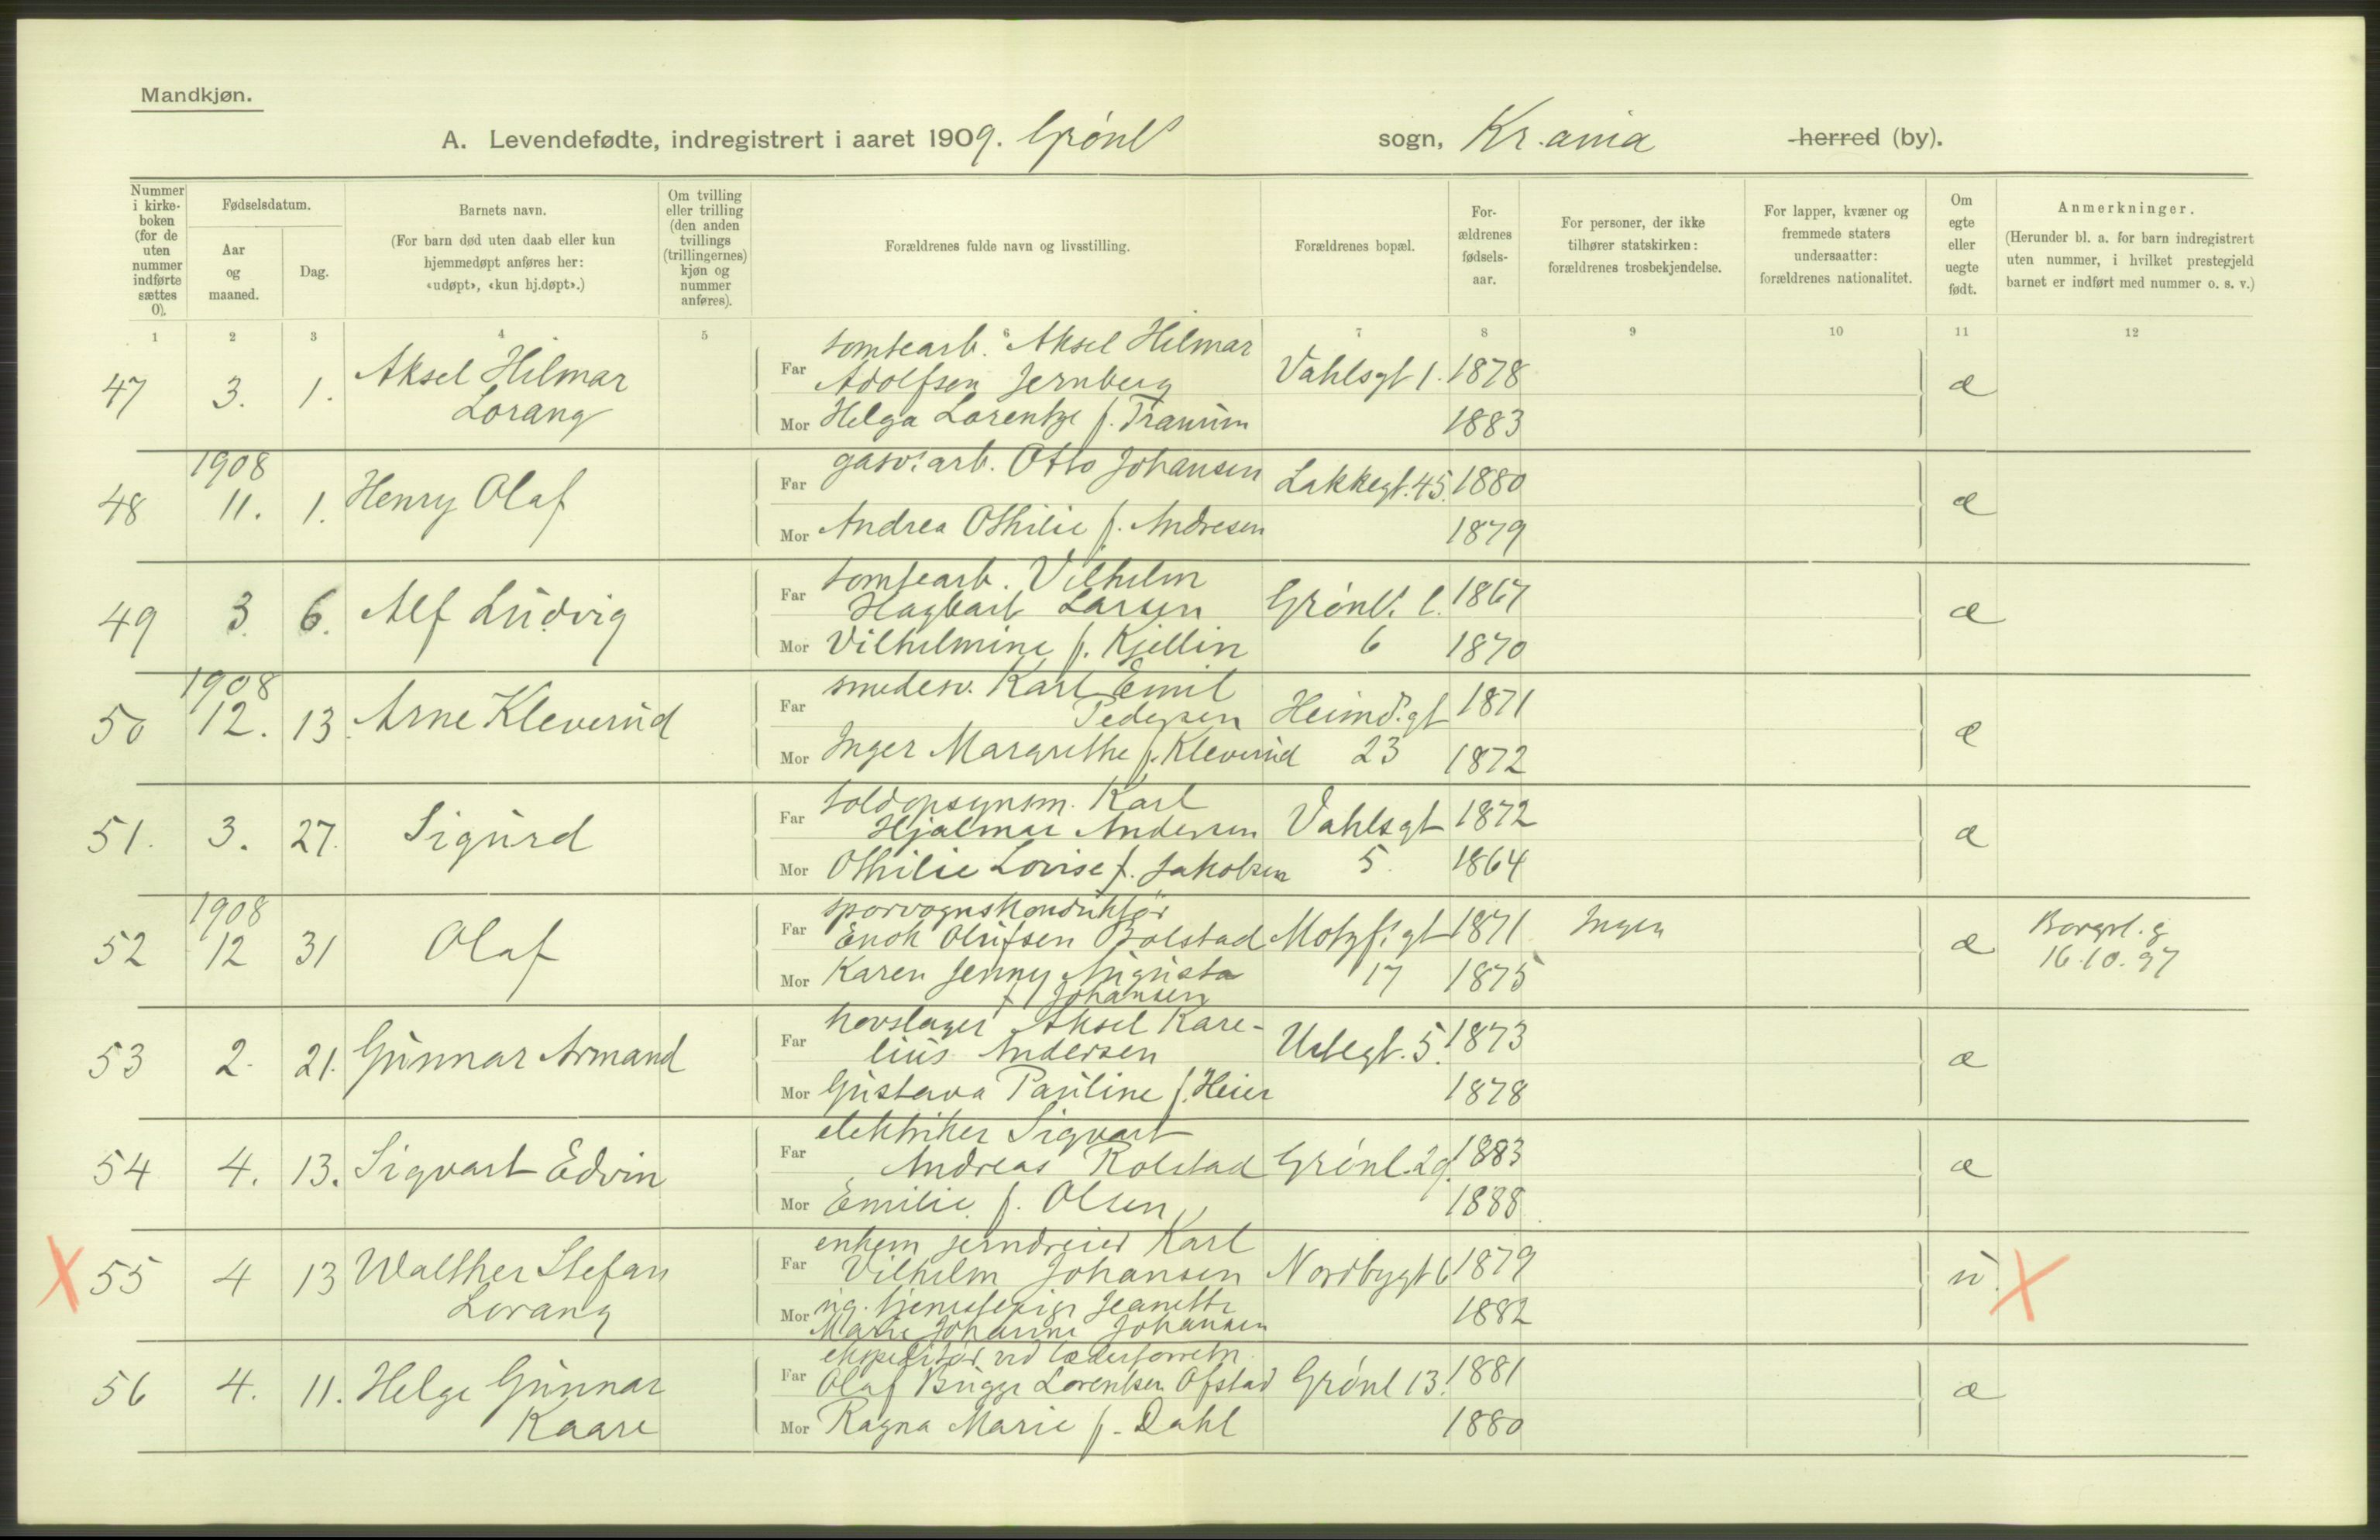 Mandkjøn.
A. Levendefødte, indregistrert i aaret 1909. Grønl. sogn, Kr.ania herred (by).
Nummer i kirkeboken (for de uten nummer indførte sættes 0).
Fødselsdatum.
Aar og maaned.
Dag.
Barnets navn.
(For barn død uten daab eller kun hjemmedøpt anføres her: «udøpt», «kun hj.døpt».)
Om tvilling eller trilling (den anden tvillings (trillingernes) kjøn og nummer anføres).
Forældrenes fulde navn og livsstilling.
Forældrenes bopæl.
Forældrenes fødselsaar.
For personer, der ikke tilhører statskirken: forældrenes trosbekjendelse.
For lapper, kvæner og fremmede staters undersaatter: forældrenes nationalitet.
Om egte eller uegte født.
Anmerkninger.
(Herunder bl. a. for barn indregistrert uten nummer, i hvilket prestegjeld barnet er indført med nummer o. s. v.)
1 2 3 4 5 6 7 8 9 10 11 12
47 3. 1. Aksel Hilmar Lorang
Far tomtearb. Aksel Hilmar
Adolfsen Jernberg Vahlsgt 1. 1878 æ
Mor Helga Lorentze f. Tranum 1883
1908
48 11. 1. Henry Olaf
Far gasv.arb. Otto Johansen Lakkegt. 45. 1880 æ
Mor Andrea Othilie f. Andresen 1879
49 3. 6. Alf Ludvig
Far tomtearb. Vilhelm
Hagbart Larsen Grønl. l. 1867 æ
Mor Vilhelmine f. Kjellin 6 1870
1908
50 12. 13. Arne Kleverud
Far smedesv. Karl Emil
Pedersen Heimd.gt 1871 æ
Mor Inger Margrethe f. Kleverud 23 1872
51. 3. 27. Sigurd
Far toldopsynsm. Karl
Hjalmar Andersen Vahlsgt 1872 æ
Mor Othilie Lovise f. Jakobsen 5. 1864
1908
52 12 31 Olaf
Far sporvognskonduktør
Enok Olufsen Bolstad Motzf.gt 1871 Ingen æ Borgerl. g
16.10.97
Mor Karen Jenny Augusta 17 1875
f. Johansen
53 2. 21. Gunnar Armand
Far hovslager Aksel Kare-
lius Andersen Urtegt. 5. 1873 æ
Mor Gustava Pauline f. Heier 1878
54 4. 13. Sigvart Edvin
Far elektriker Sigvart
Andreas Rolstad Grønl. 29. 1883 æ
Mor Emilie f. Olsen 1888.
X 55 4 13 Walther Stefan Lorang
Far enkem. jerndreier Karl
Vilhelm Johansen Nordbygt 6 1879 u. X
Mor ug. tjenestepige Jeanette
Marie Johanne Johansen 1882
56 4. 11. Helge Gunnar Kaare
Far ekspeditør ved læderforretn.
Olaf Brigge Lorentsen Ofstad Grønl 13. 1881 æ
Mor Ragna Marie f. Dahl 1880